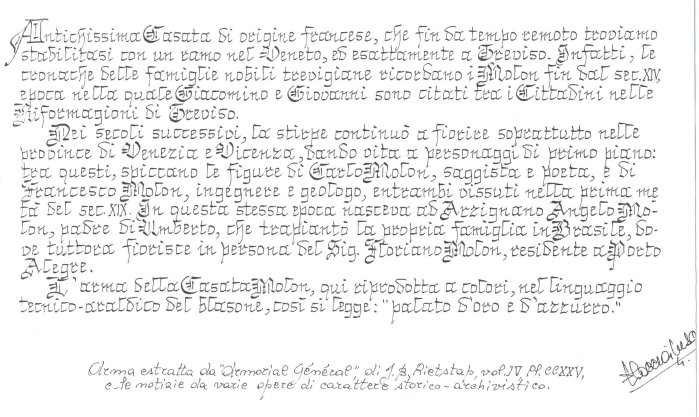 Antichissima Casata di origine francese, che fin da tempo remoto troviamo
stabilitasi con un ramo nel Veneto, ed esattamente a Treviso. Infatti, le
cronache delle famiglie nobili trevigiane ricordano i Molon fin dal sec. XIV,
epoca nella quale Giacomino e Giovanni sono citati tra i Cittadini nelle
Riformagioni di Treviso.
Nei secoli successivi, la stirpe continuò a fiorire soprattutto nelle
province di Venezia e Vicenza, dando vita a personaggi di primo piano:
tra questi, spiccano le figure di Carlo Molon, saggista e poeta, e di
Francesco Molon, ingegnere e geologo, entrambi vissuti nella prima me
tà del sec. XIX. In questa stessa epoca nasceva ad Arzignano Angelo Mo-
lon, padre di Umberto, che trapiantò la propria famiglia in Brasile, do-
ve tuttora fiorisce in persona del Sig. Floriano Molon, residente a Porto
Alegre.
L'arma della Casata Molon, qui riprodotta a colori, nel linguaggio
tecnico-araldico del blasone, così si legge: "palato d'oro e d'azzurro."
Arma estratta da "Ormorial Général", di J. B. Rietstap, vol. IV, Pl. CCXXV,
e le notizie da varie opere di carattere storico-archivistico.